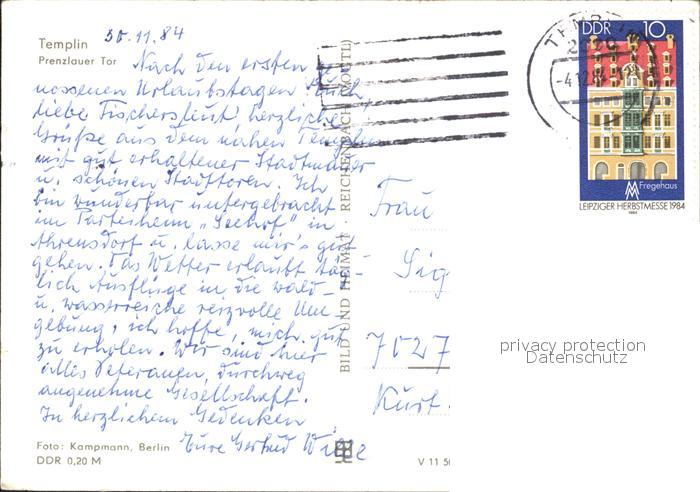 30.11.84
Templin
Prenzlauer Tor
Nach den ersten ge-
nossenen Urlaubstagen Euch,
liebe Fischersfünf, herzliche
Grüße aus dem nahen Templin
mit gut erhaltener Stadtmauer
u. schönen Stadttoren. Ich
bin wunderbar untergebracht
im Parteiheim „Seehof" in
Ahrensdorf u. lasse mir's gut
gehen. Das Wetter erlaubt täg-
lich Ausflüge in die wald-
u. wasserreiche reizvolle Um-
gebung, ich hoffe, mich gut
zu erholen. Wir sind hier
alles Veteranen, durchweg
angenehme Gesellschaft.
In herzlichem Gedenken
Eure Gertrud
Foto: Kampmann, Berlin
DDR 0,20 M
BILD UND HEIMAT · REICHENBACH (VOGTL)
V 11 50
TEMPLIN
2090
-4.12.84
DDR 10
Fregehaus
LEIPZIGER HERBSTMESSE 1984
1984
Frau
Sig
7027
Kurt
privacy protection
Datenschutz